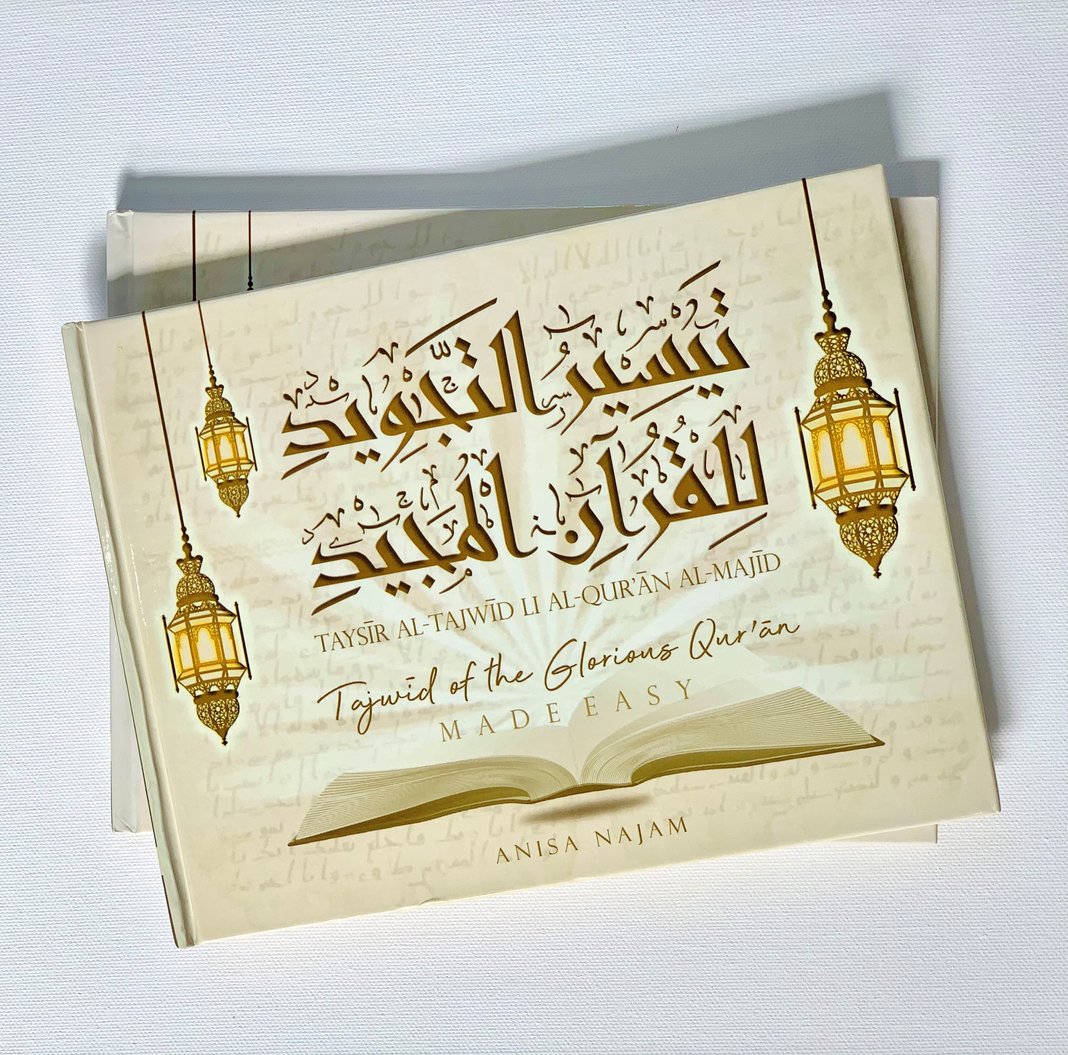 تَيْسِيرُ التَّجْوِيدِ
لِلْقُرْآنِ الْمَجِيدِ
TAYSĪR AL-TAJWĪD LI AL-QUR'ĀN AL-MAJĪD
Tajwīd of the Glorious Qur'ān
MADE EASY
ANISA NAJAM